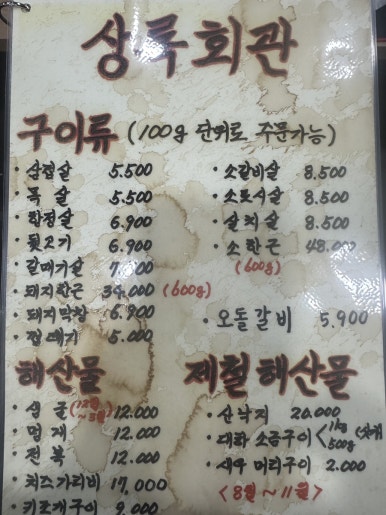 상록회관
구이류 (100g 단위로 주문가능)
· 삼겹살 5.500
· 목살 5.500
· 항정살 6.900
· 뒷고기 6.900
· 갈매기살
· 돼지한근 34.000 (600g)
· 돼지막창 6.900
· 껍데기 5.000
· 소갈비살 8.500
· 소토시살 8.500
· 살치살 8.500
· 소한근 48.000
(600g)
· 오돌갈비 5.900
해산물
· 생굴 (12월~5월) 12.000
· 멍게 12.000
· 전복 12.000
· 치즈가리비 17,000
· 키조개구이 9.000
제철해산물
· 산낙지 20.000
· 대하 소금구이 < 1kg 500g
· 새우 머리구이 2.000
<8월~11월>